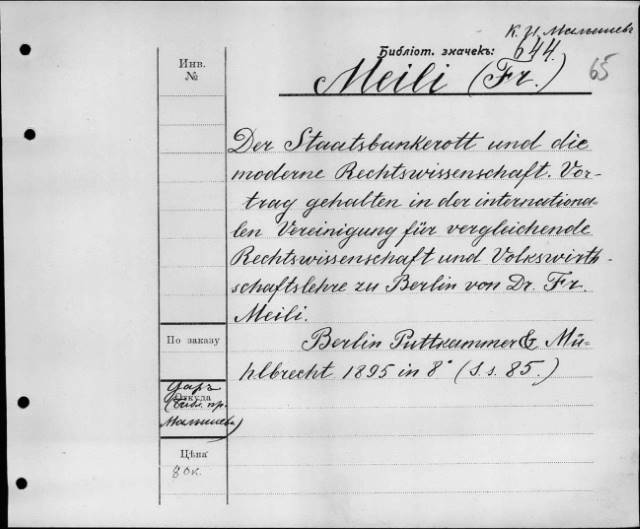 К. И. Малышев
Библіот. значекъ: 644.
65
Инв.
№
Meili (Fr.)
Der Staatsbankerott und die
moderne Rechtswissenschaft. Vor-
trag gehalten in der internationa-
len Vereinigung für vergleichende
Rechtswissenschaft und Volkswirth-
schaftslehre zu Berlin von Dr. Fr.
Meili.
Berlin Puttkammer & Mü-
hlbrecht 1895 in 8° (S. s. 85.)
По заказу
Даръ
Откуда
(библ. пр.
Малышева)
Цѣна
80к.